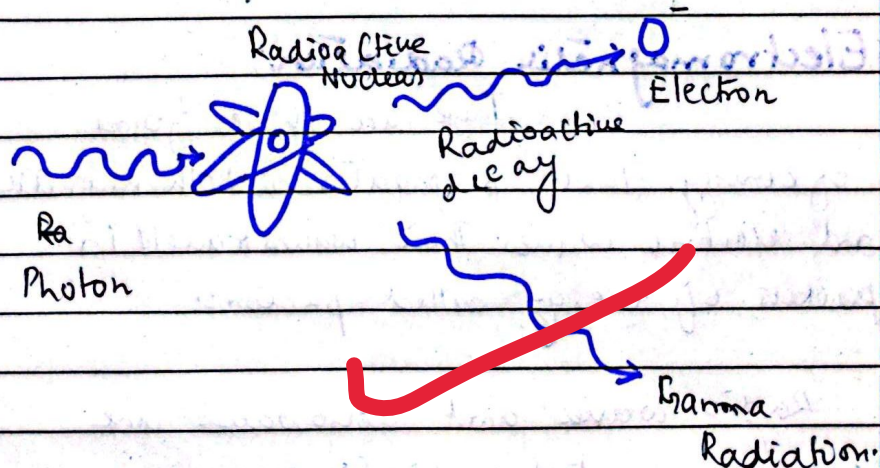 Radioactive
Nucleus
O-
Electron
Radioactive
decay
Ra
Photon
Gamma
Radiation.